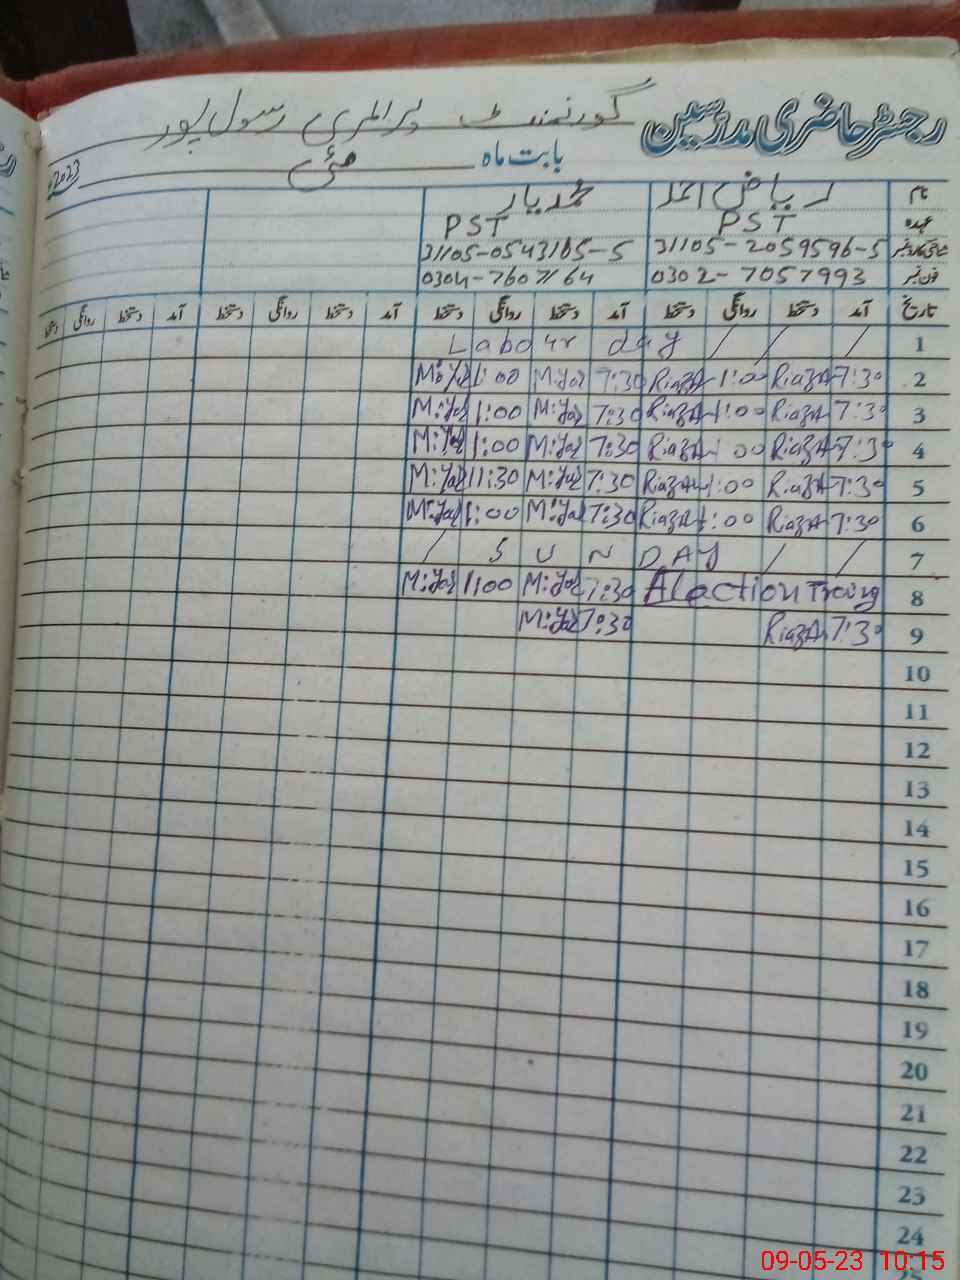 رجسٹر حاضری مدرسین گورنمنٹ پرائمری رسول پور
بابت ماہ مئی 2023
نام ریاض احمد محمد یار
عہدہ PST PST
شناختی کارڈ نمبر 31105-2059596-5 31105-0543165-5
فون نمبر 0302-7057993 0304-7607164
تاریخ آمد دستخط روانگی دستخط آمد دستخط روانگی دستخط آمد دستخط روانگی دستخط آمد دستخط روانگی دستخط
1 Labour day / / /
2 7:30 RiazA 1:00 RiazA 7:30 M:Yar 1:00 M:Yar
3 7:30 RiazA 1:00 RiazA 7:30 M:Yar 1:00 M:Yar
4 7:30 RiazA 1 00 RiazA 7:30 M:Yar 1:00 M:Yar
5 7:30 RiazA 1:00 RiazA 7:30 M:Yar 11:30 M:Yar
6 7:30 RiazA 1:00 RiazA 7:30 M:Yar 1:00 M:Yar
7 / SUNDAY / /
8 Alaction 7:30 M:Yar 1:00 M:Yar
9 7:30 RiazA 7:30 M:Yar
10
11
12
13
14
15
16
17
18
19
20
21
22
23
24
09-05-23 10:15